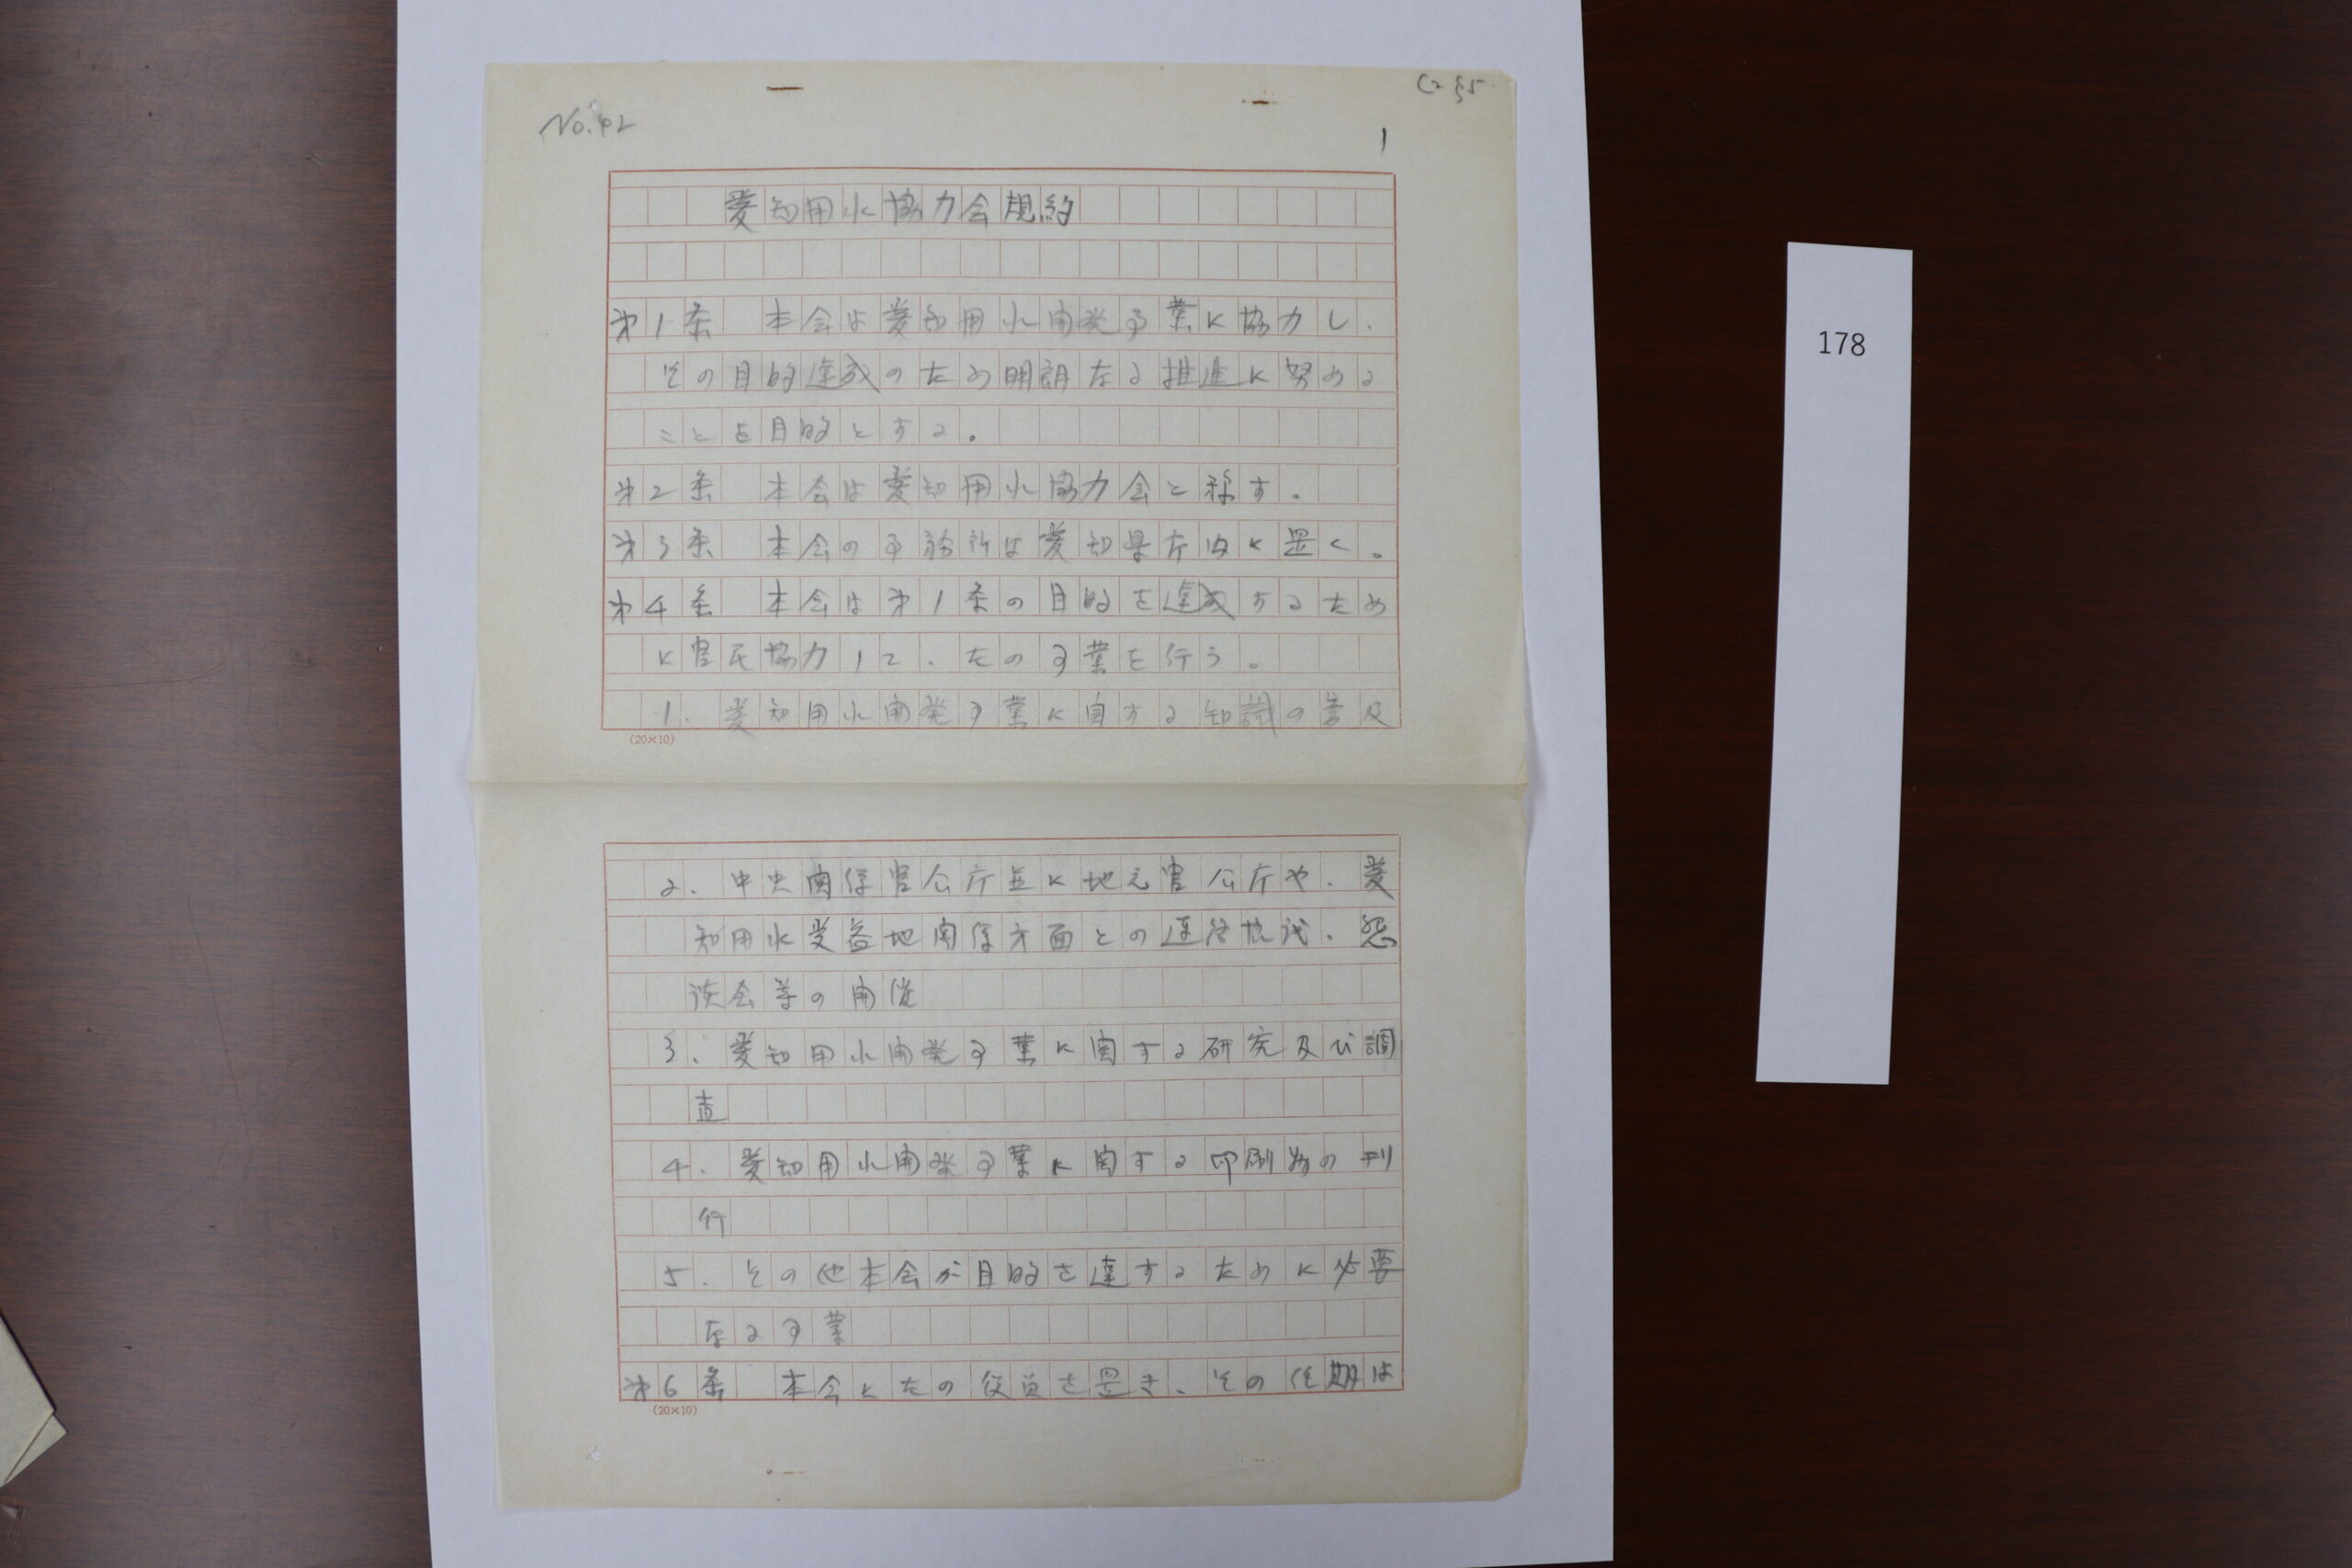 C2 §5
No.42
1
愛知用水協力会規約
第1条　本会は愛知用水開発事業に協力し、
その目的達成のため明朗なる推進に努める
ことを目的とする。
第2条　本会は愛知用水協力会と称す。
第3条　本会の事務所は愛知県庁内に置く。
第4条　本会は第1条の目的を達成するため
に官民協力して、左の事業を行う。
1. 愛知用水開発事業に関する知識の普及
(20×10)
2. 中央関係官公庁並に地元官公庁や、愛
知用水受益地関係方面との連絡協議、懇
談会等の開催
3. 愛知用水開発事業に関する研究及び調
査
4. 愛知用水開発事業に関する印刷物の刊
行
5. その他本会が目的を達するために必要
なる事業
第6条　本会に左の役員を置き、その任期は
(20×10)
178